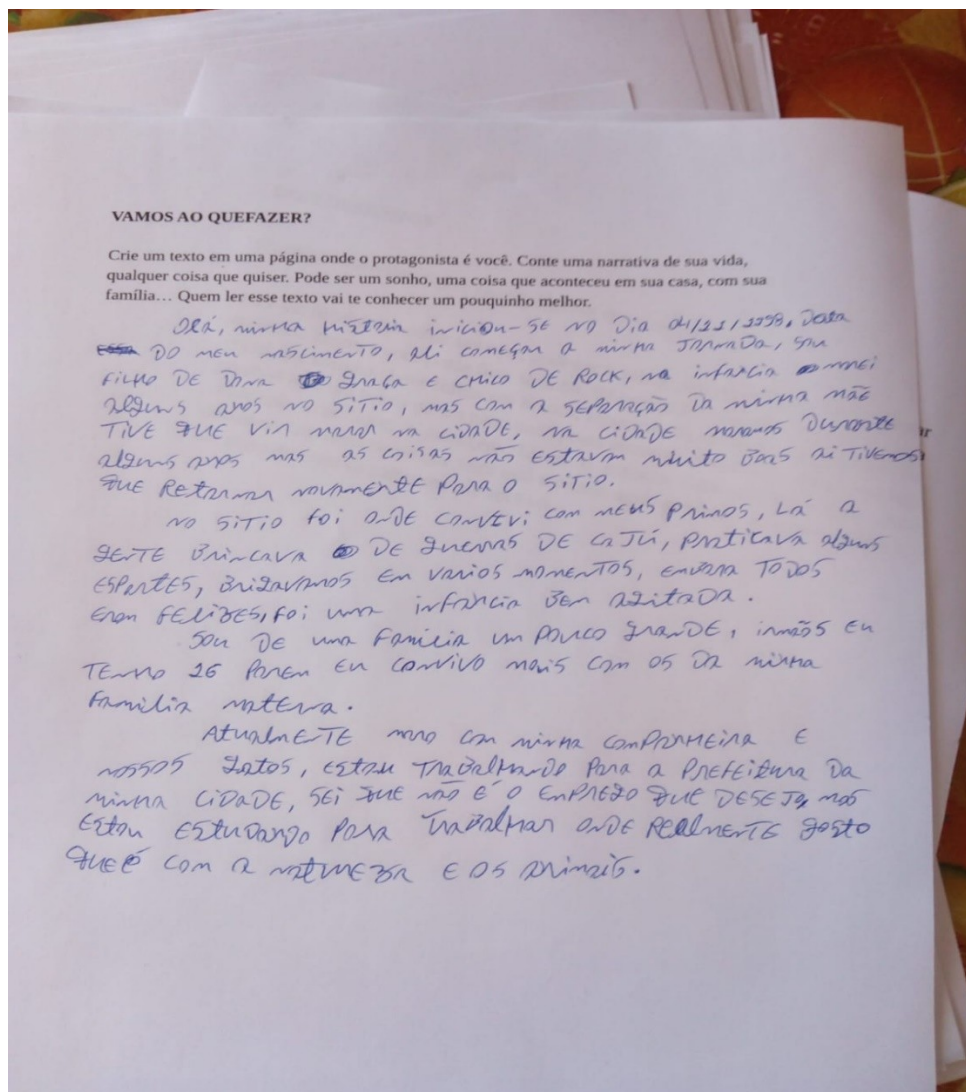 VAMOS AO QUEFAZER?
Crie um texto em uma página onde o protagonista é você. Conte uma narrativa de sua vida,
qualquer coisa que quiser. Pode ser um sonho, uma coisa que aconteceu em sua casa, com sua
família… Quem ler esse texto vai te conhecer um pouquinho melhor.
Olá, minha história iniciou-se no dia 04/11/1998, Data
DO meu nascimento, ali começou a minha Jornada, sou
Filho DE Dona Graça e Chico DE Rock, na infância morei
alguns anos no SíTio, mas com a SEPARAÇÃO Da minha mãe
TIVE QUE Vir morar na ciDADE, na ciDADE moramos Durante
alguns anos mas as coisas não estavam muito Boas ai Tivemos
QUE Retornar novamente Para o SíTio.
No SíTio foi onDE convivi com meus Primos, Lá a
GENTE Brincava DE guerras DE caJú, praticava alguns
ESPortES, Brigavamos Em varios momentos, embora ToDos
Eram FELIZES, Foi uma infância Bem agitaDa.
Sou DE uma Familia um Pouco granDE, irmãos Eu
TENHO 16 Porem Eu convivo mais com os Da minha
Familia materna.
AtualmETE moro com minha comPanhEira E
nossos gatos, estou TraBalhanDo Para a PrefEitura Da
minha CiDaDE, SEi QUE não é o EmPrEgo QUE DESEJo, mas
Estou EStuDanDo Para TraBalhar onDE REalmEnTE gosto
QUE é com a naturEza E os animais.